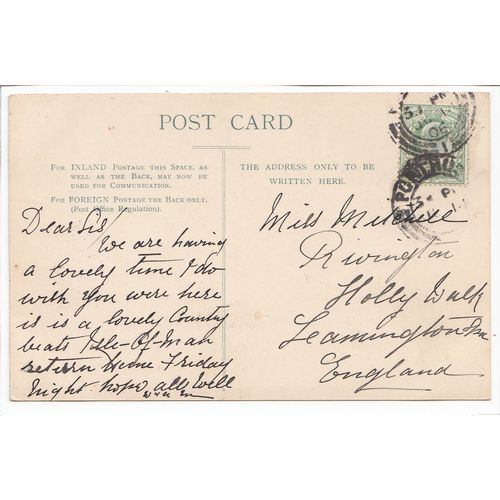 POST CARD
FOR INLAND POSTAGE THIS SPACE, AS
WELL AS THE BACK, MAY NOW BE
USED FOR COMMUNICATION.
FOR FOREIGN POSTAGE THE BACK ONLY.
(Post Office Regulation).
THE ADDRESS ONLY TO BE
WRITTEN HERE.
Dear Sis
We are having
a lovely time I do
wish you were here
it is a lovely County
beats Isle-Of-Man
return home Friday
night. hope all Well
Miss Mitchell
Rivington
Holly Walk
Leamington Spa
England